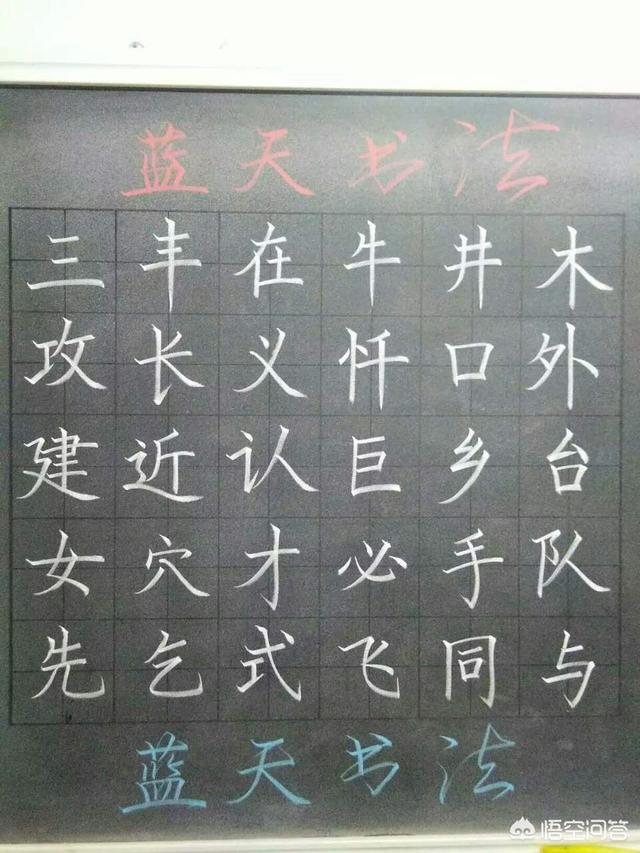 蓝天书法
三丰在牛井木
攻长义忏口外
建近认巨乡台
女穴才必手队
先乞式飞同与
蓝天书法
悟空问答